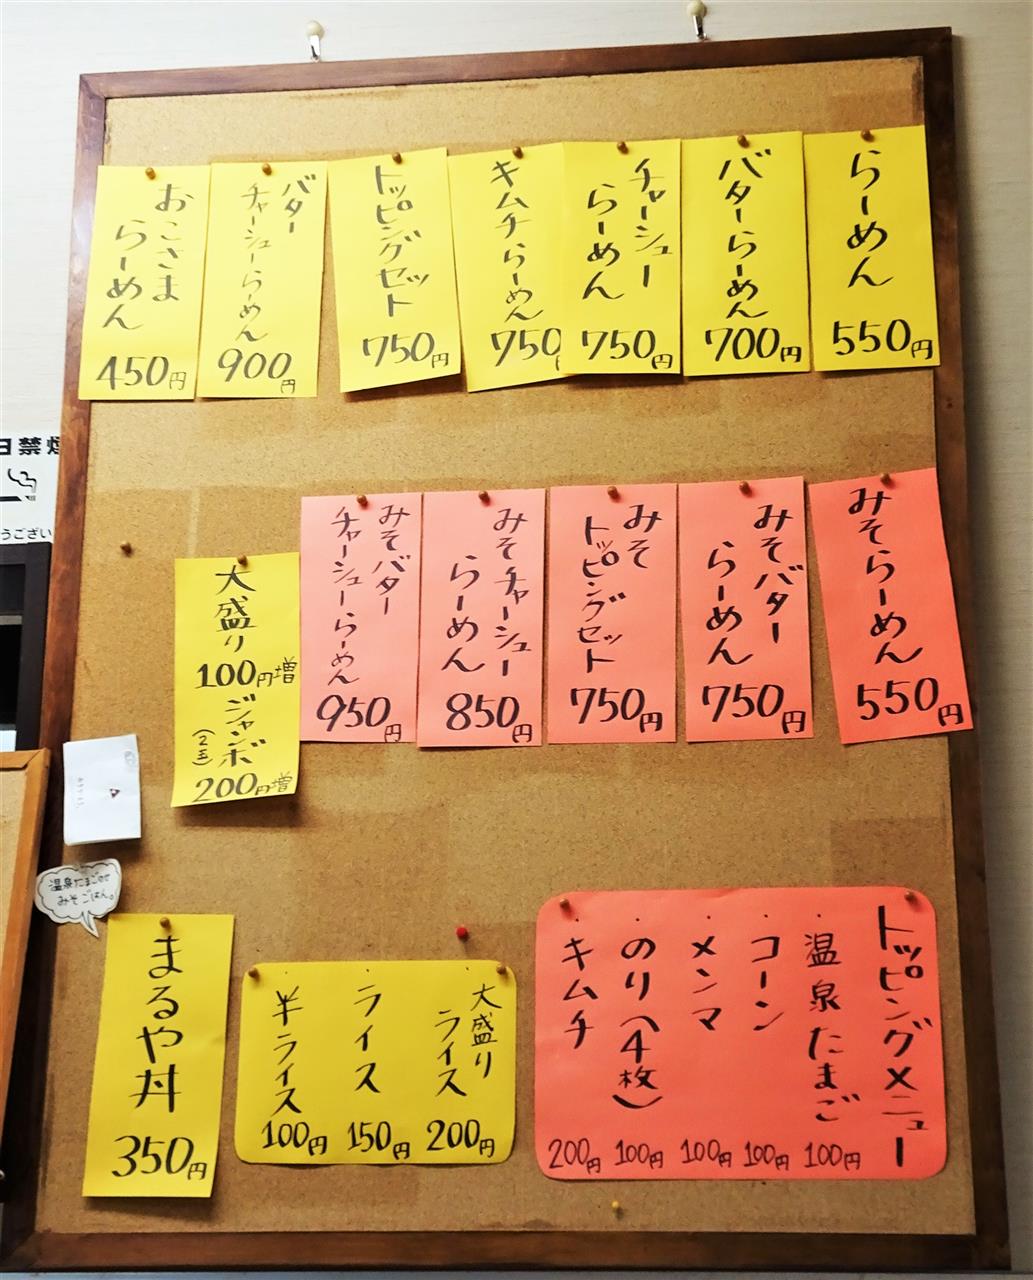 らーめん
550円
バターらーめん
700円
チャーシュー
らーめん
750円
キムチらーめん
750
トッピングセット
750円
バター
チャーシューらーめん
900円
おこさま
らーめん
450円
みそらーめん
550円
みそバター
らーめん
750円
みそ
トッピングセット
750円
みそチャーシュー
らーめん
850円
みそバター
チャーシューらーめん
950円
大盛り
100円増
ジャンボ
(2玉)
200円増
トッピングメニュー
・温泉たまご
100円
・コーン
100円
・メンマ
100円
・のり(4枚)
100円
・キムチ
200円
・大盛り
ライス
200円
・ライス
150円
・半ライス
100円
まるや丼
350円
温泉たまごのせ
みそごはん。
日禁煙
うござい